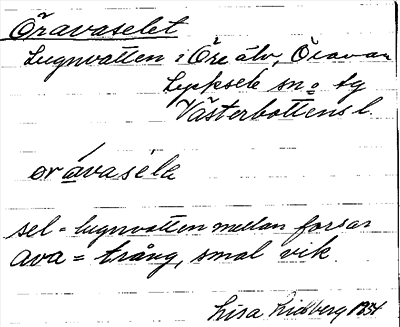 Öravaselet
Lugnvatten i Öre älv, Öravan
Lycksele sn o tg
Västerbottens l.
ørávaséle
sel = lugnvatten mellan forsar
ava = trång, smal vik
Lisa Lidberg 1934